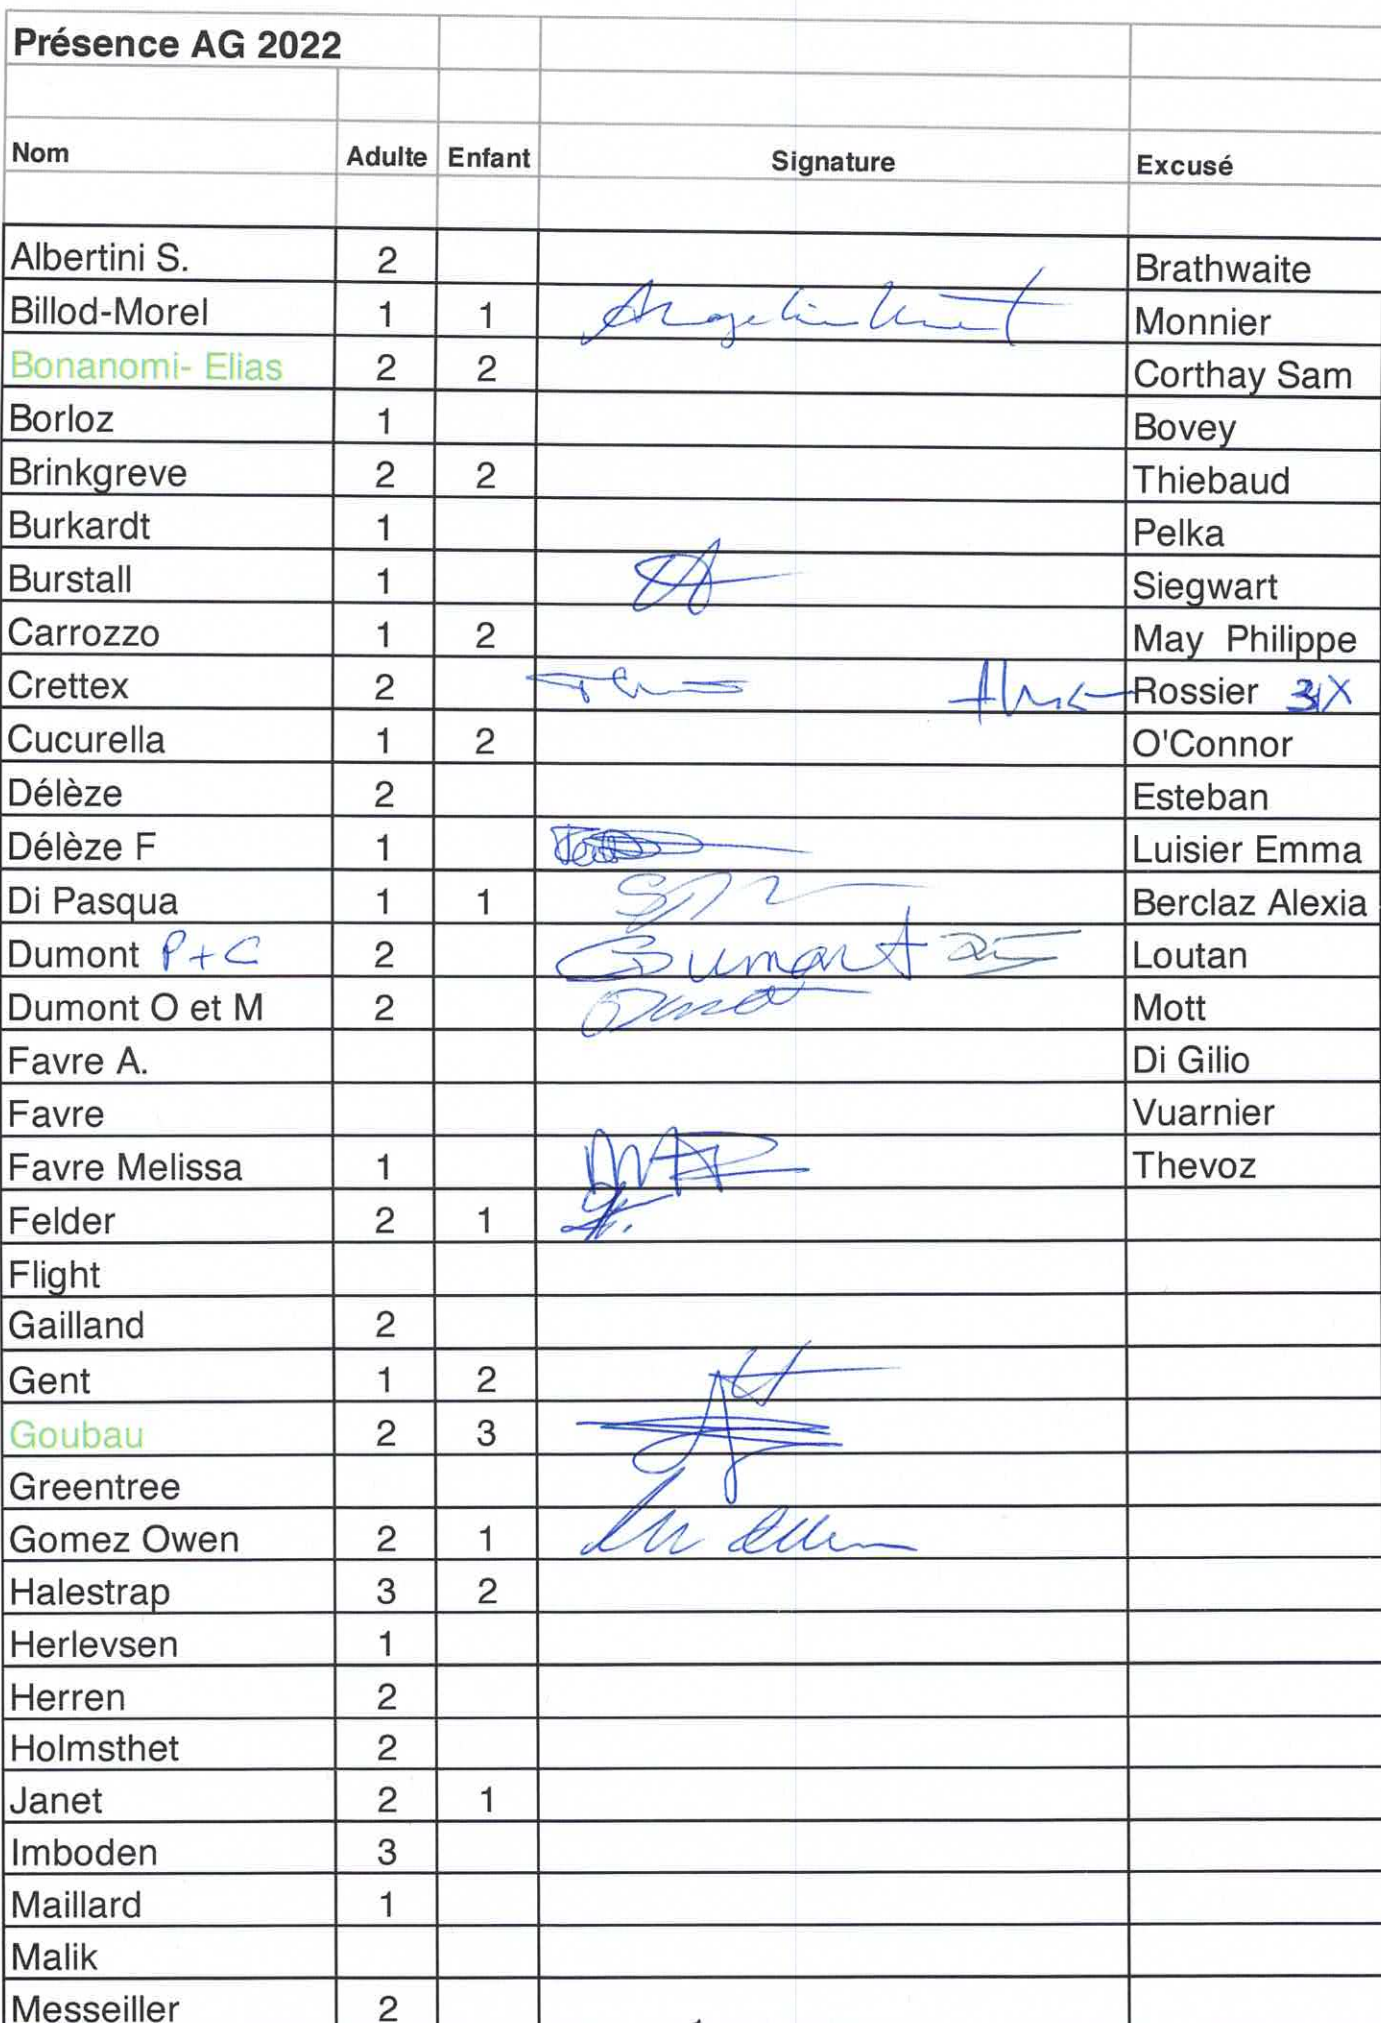 Présence AG 2022
Nom Adulte Enfant Signature Excusé
Albertini S. 2 Brathwaite
Billod-Morel 1 1 Monnier
Bonanomi- Elias 2 2 Corthay Sam
Borloz 1 Bovey
Brinkgreve 2 2 Thiebaud
Burkardt 1 Pelka
Burstall 1 Siegwart
Carrozzo 1 2 May Philippe
Crettex 2 Rossier
Cucurella 1 2 O'Connor
Délèze 2 Esteban
Délèze F 1 Luisier Emma
Di Pasqua 1 1 Berclaz Alexia
Dumont P+C 2 Dumont Loutan
Dumont O et M 2 Mott
Favre A. Di Gilio
Favre Vuarnier
Favre Melissa 1 Thevoz
Felder 2 1
Flight
Gailland 2
Gent 1 2
Goubau 2 3
Greentree
Gomez Owen 2 1
Halestrap 3 2
Herlevsen 1
Herren 2
Holmsthet 2
Janet 2 1
Imboden 3
Maillard 1
Malik
Messeiller 2